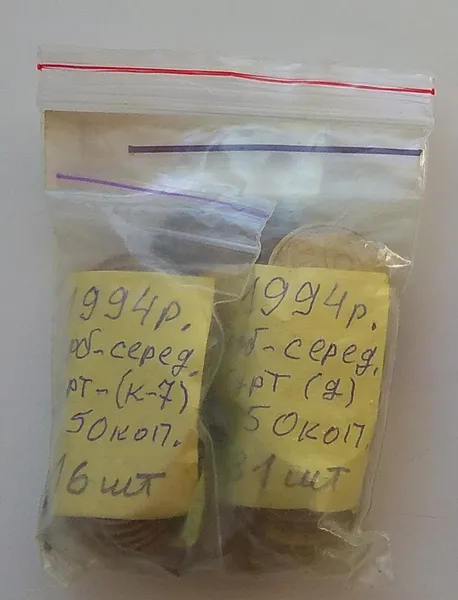 1994р.
серед.
(к-7)
50коп.
16 шт
1994р.
серед.
(д)
50коп.
31 шт